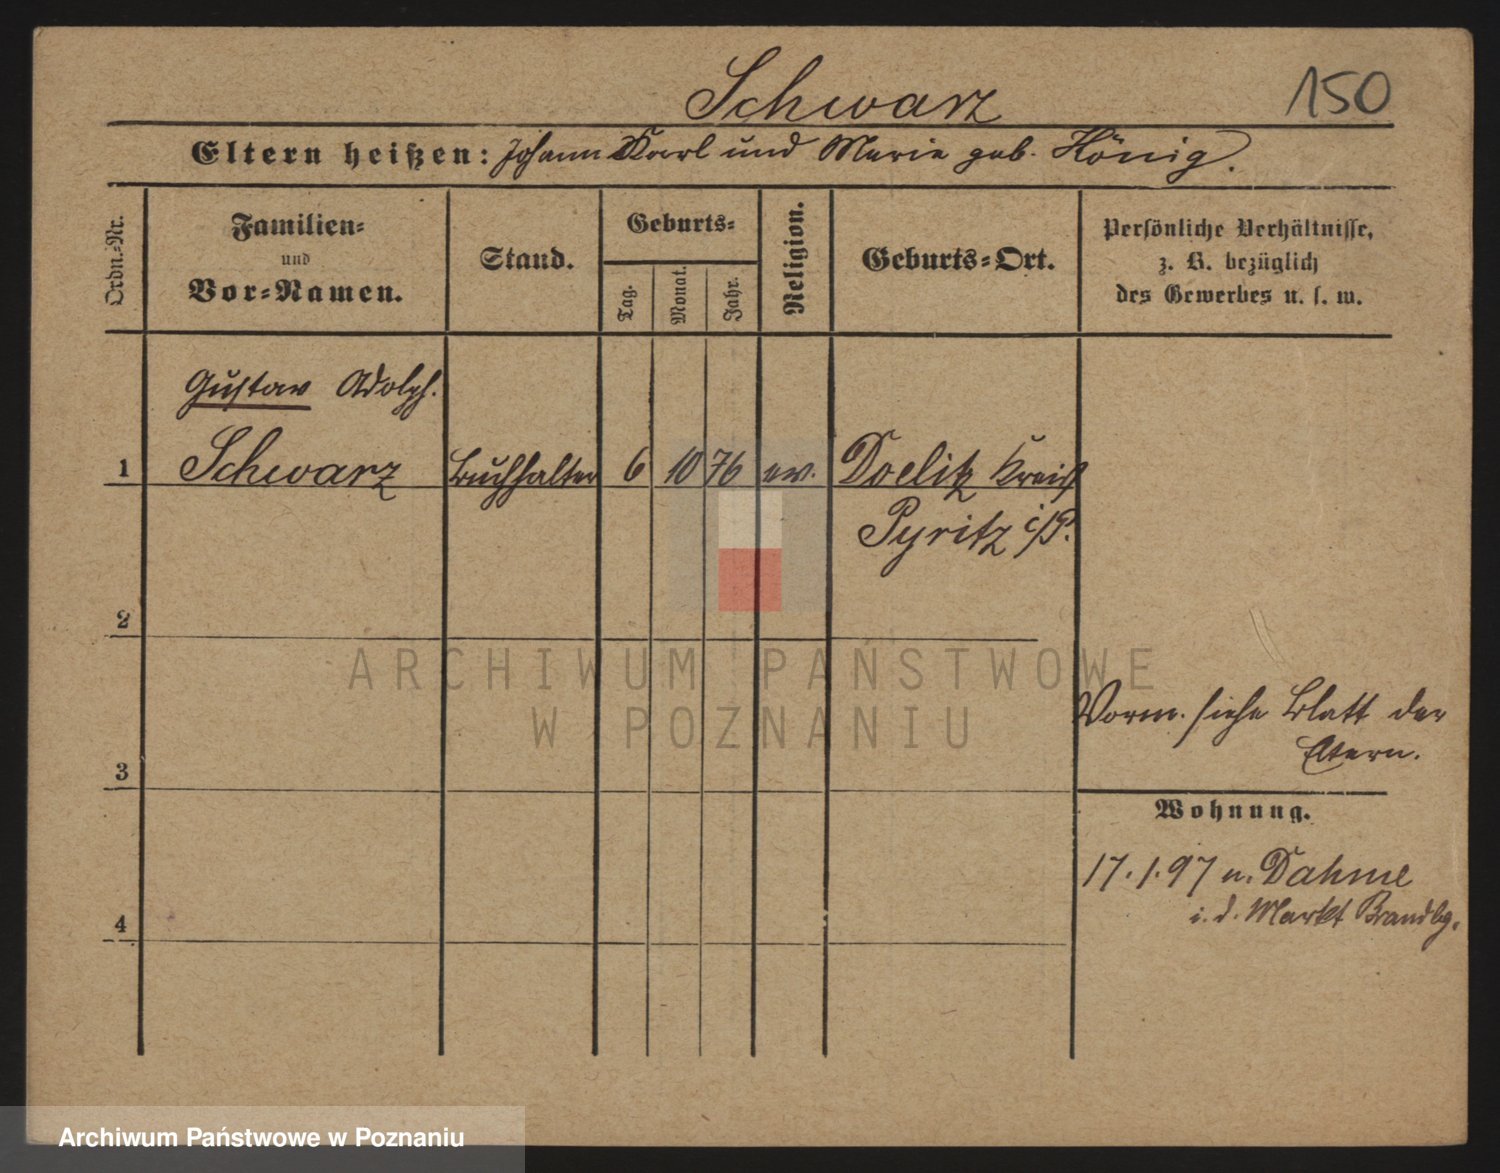 Schwarz
150
Eltern heißen: Johann Karl und Marie geb. Hönig.
Ordn.-Nr.
Familien-
und
Vor-Namen.
Stand.
Geburts-
Tag.
Monat.
Jahr.
Religion.
Geburts-Ort.
Persönliche Verhältnisse,
z. B. bezüglich
des Gewerbes u. s. w.
Gustav Adolph.
1 Schwarz Buchhalter 6 10 76 ev. Doelitz Kreis
Pyritz i/P.
2
ARCHIWUM PAŃSTWOWE
W POZNANIU
Vorm. siehe Blatt der
Eltern.
3
Wohnung.
17.1.97 n. Dahme
i. d. Markt Brandbg.
4
Archiwum Państwowe w Poznaniu